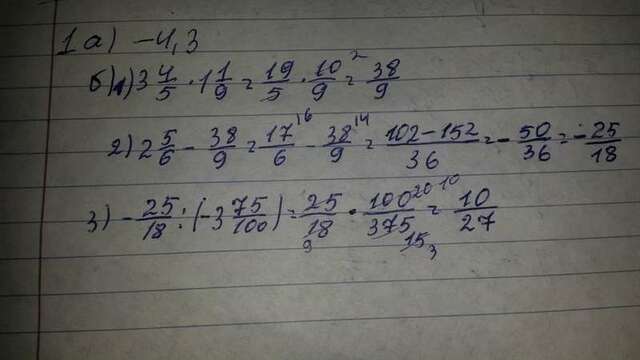 1 а) -4,3
б) 1) 3 4/5 · 1 1/9 = 19/5 · 10/9 ² = 38/9
2) 2 5/6 - 38/9 = 17/6 ¹⁶ - 38/9 ¹⁴ = 102-152/36 = - 50/36 = - 25/18
3) - 25/18 : (-3 75/100) = 25/18 9 · 100 20 10/375 15 3 = 10/27